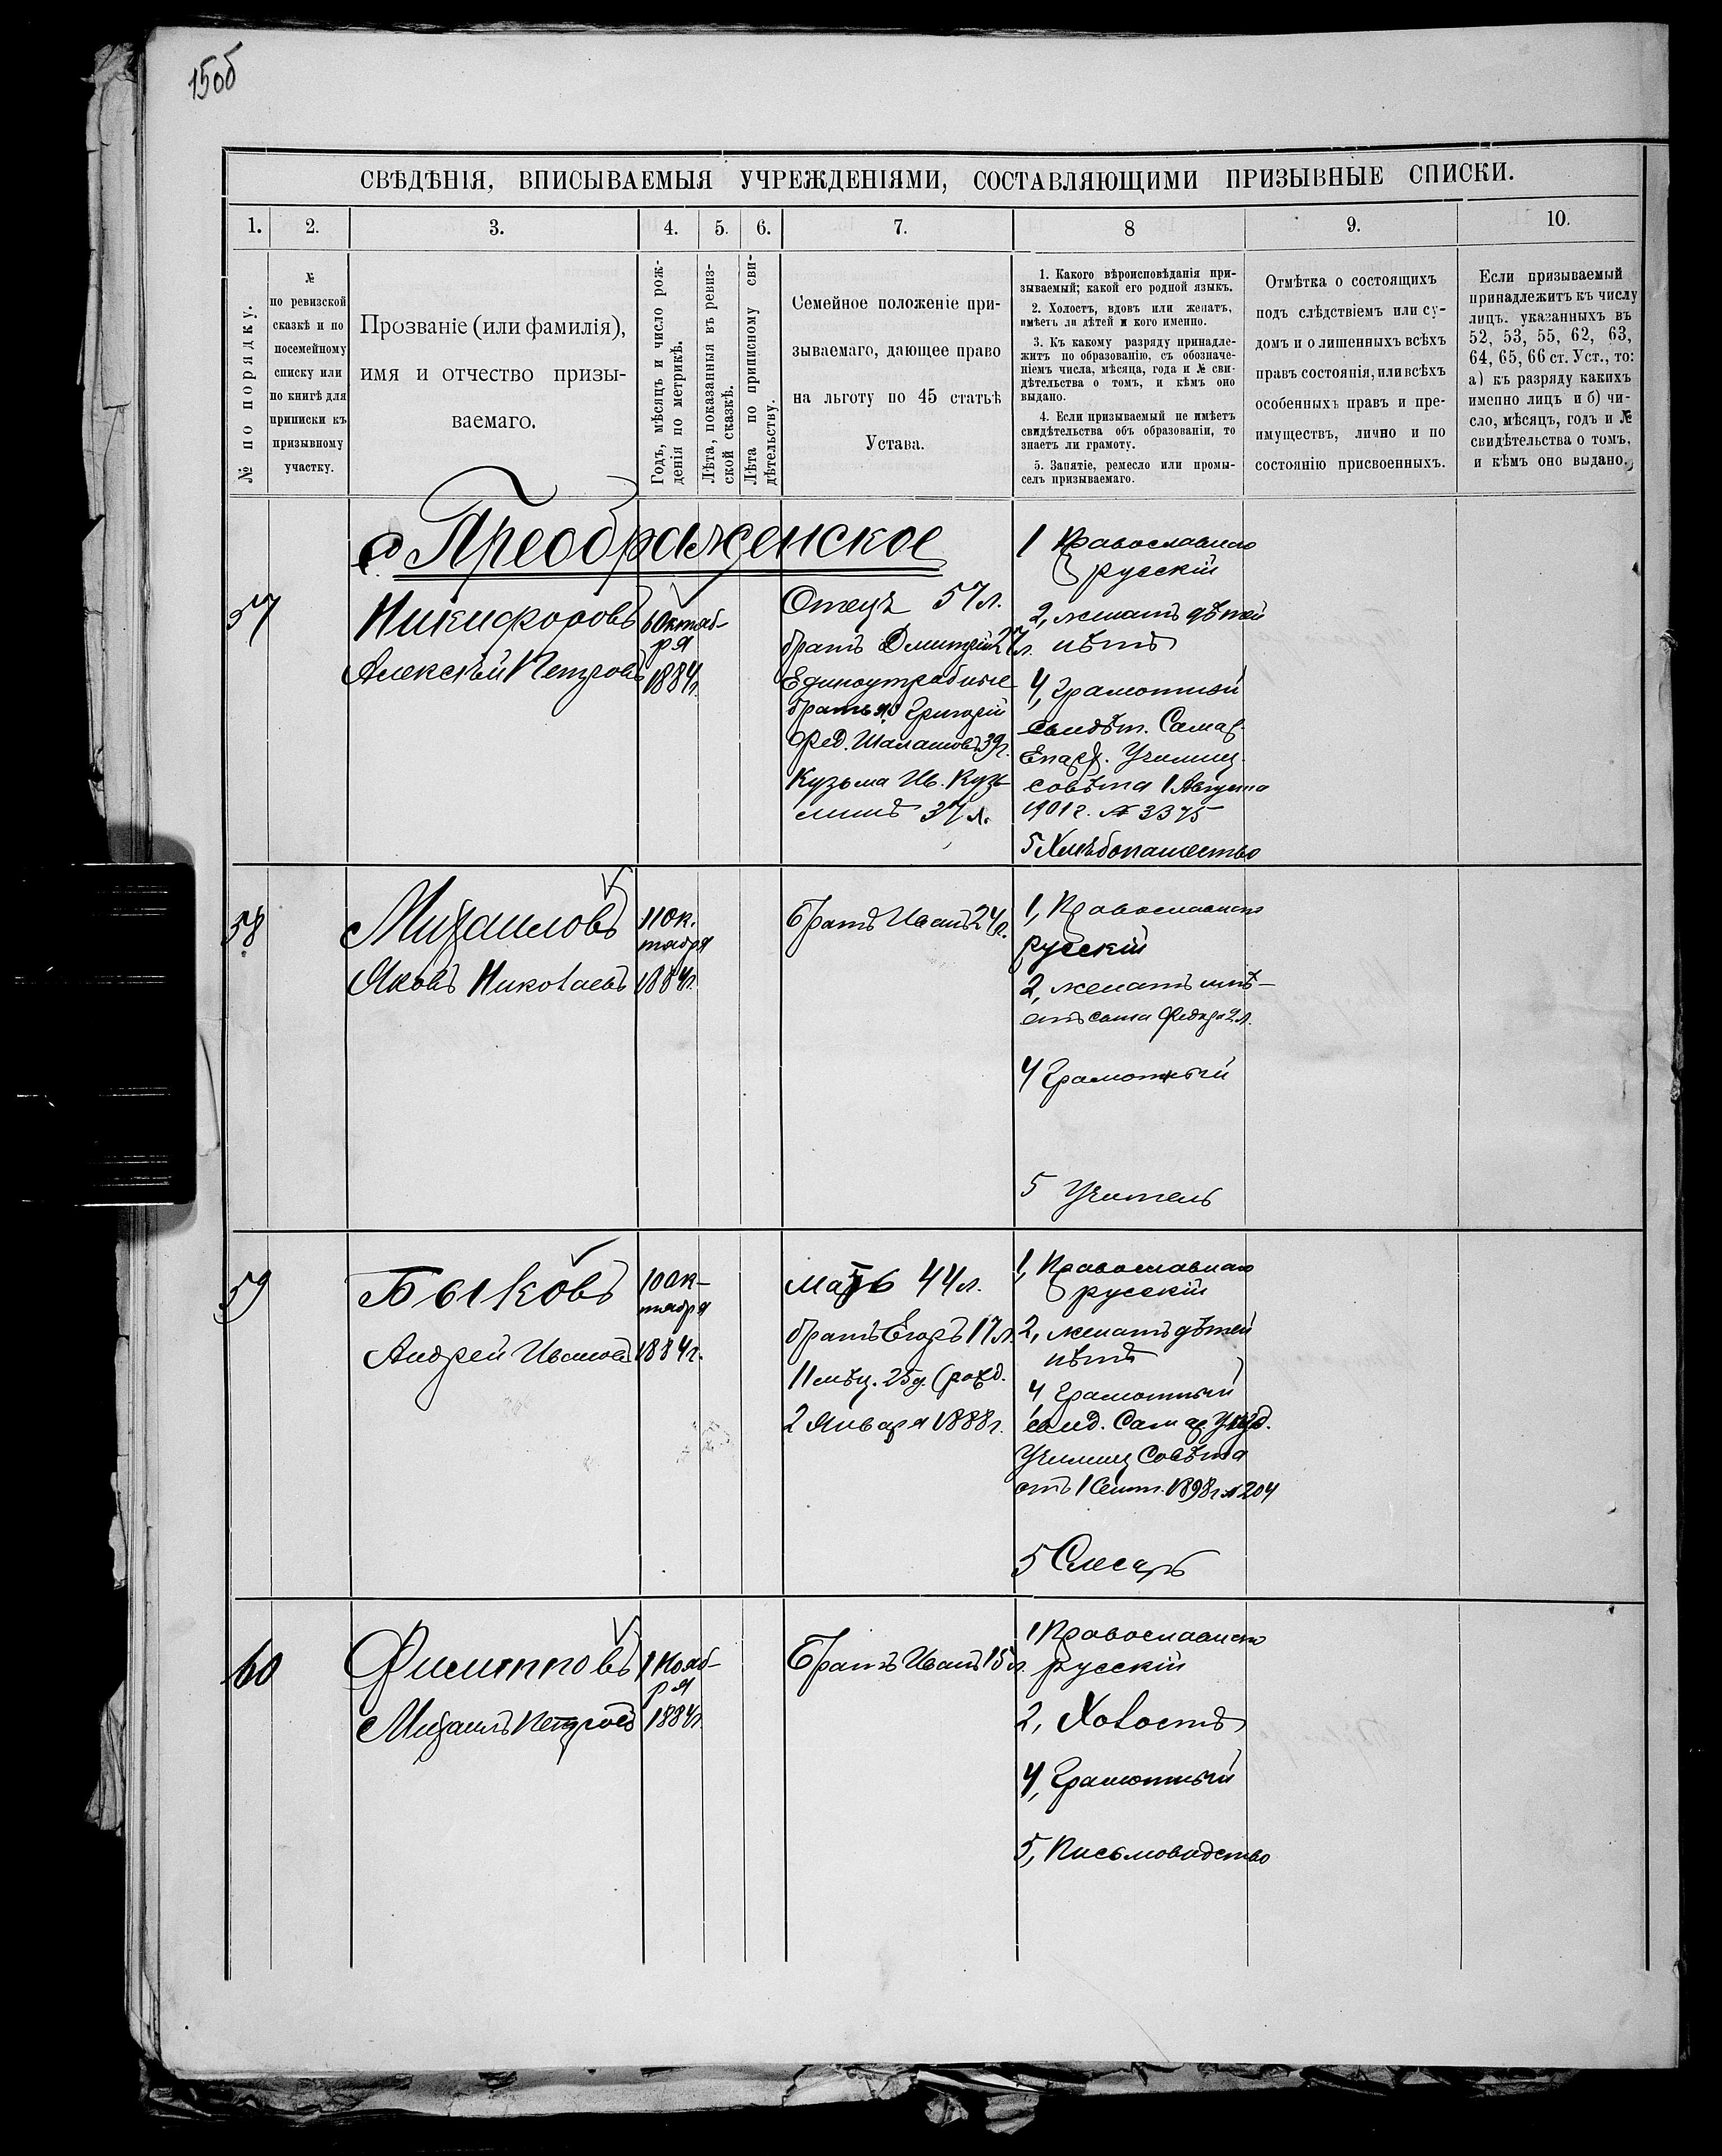 150б
СВѢДѢНІЯ, ВПИСЫВАЕМЫЯ УЧРЕЖДЕНІЯМИ, СОСТАВЛЯЮЩИМИ ПРИЗЫВНЫЕ СПИСКИ.
1. 2. 3. 4. 5. 6. 7. 8 9. 10.
№ по порядку.
№
по ревизской
сказкѣ и по
посемейному
списку или
по книгѣ для
приписки къ
призывному
участку.
Прозваніе (или фамилія),
имя и отчество призы-
ваемаго.
Годъ, мѣсяцъ и число рож-
денія по метрикѣ.
Лѣта, показанныя въ ревиз-
ской сказкѣ.
Лѣта по приписному сви-
дѣтельству.
Семейное положеніе при-
зываемаго, дающее право
на льготу по 45 статьѣ
Устава.
1. Какого вѣроисповѣданія при-
зываемый; какой его родной языкъ.
2. Холостъ, вдовъ или женатъ,
имѣетъ ли дѣтей и кого именно.
3. Къ какому разряду принадле-
житъ по образованію, съ обозначе-
ніемъ числа, мѣсяца, года и № сви-
дѣтельства о томъ, и кѣмъ оно
выдано.
4. Если призываемый не имѣетъ
свидѣтельства объ образованіи, то
знаетъ ли грамоту.
5. Занятіе, ремесло или промы-
селъ призываемаго.
Отмѣтка о состоящихъ
подъ слѣдствіемъ или су-
домъ и о лишенныхъ всѣхъ
правъ состоянія, или всѣхъ
особенныхъ правъ и пре-
имуществъ, лично и по
состоянію присвоенныхъ.
Если призываемый
принадлежитъ къ числу
лицъ, указанныхъ въ
52, 53, 55, 62, 63,
64, 65, 66 ст. Уст., то:
а) къ разряду какихъ
именно лицъ и б) чи-
сло, мѣсяцъ, годъ и №
свидѣтельства о томъ,
и кѣмъ оно выдано.
с Преображенское
57
Никифоровъ
Алексѣй Петровъ
6 Октяб-
ря
1884г.
Отецъ 57 л.
братъ Дмитрій 27 л.
Единоутробные
братья: Григорій
Фед. Шалашовъ 39 г.
Кузьма Ив. Кузь-
минъ 37 л.
1 Православнаго
русскій
2, женатъ дѣтей
нѣтъ
4, Грамотный
свидѣт. Самар.
Епарх. Училищ.
совѣта 1 Августа
1901 г. № 3375
5 Хлѣбопашество
58
Михаиловъ
Яковъ Николаевъ
11 Ок.
тября
1884г.
Братъ Иванъ 24 г.
1, Православнаго
русскій
2, женатъ имѣ-
етъ сына Федора 2 л.
4 Грамотный
5 Учитель
59
Быковъ
Андрей Ивановъ
10 Ок-
тября
1884г.
мать 44 л.
братъ Егоръ 17 л.
11 мѣц. 25 д. (рожд.
2 Января 1888 г.
1, Православнаго
русскій
2, женатъ дѣтей
нѣтъ
4 Грамотный
свид. Самар. Уѣзд.
Училищ Совѣта
отъ 1 Сент. 1898 г № 204
5 Слесарь
60
Филипповъ
Михаилъ Петровъ
1 Нояб-
ря
1884г.
Братъ Иванъ 15 л.
1 Православнаго
русскій
2, Холостъ
4, Грамотный
5, Письмоводство